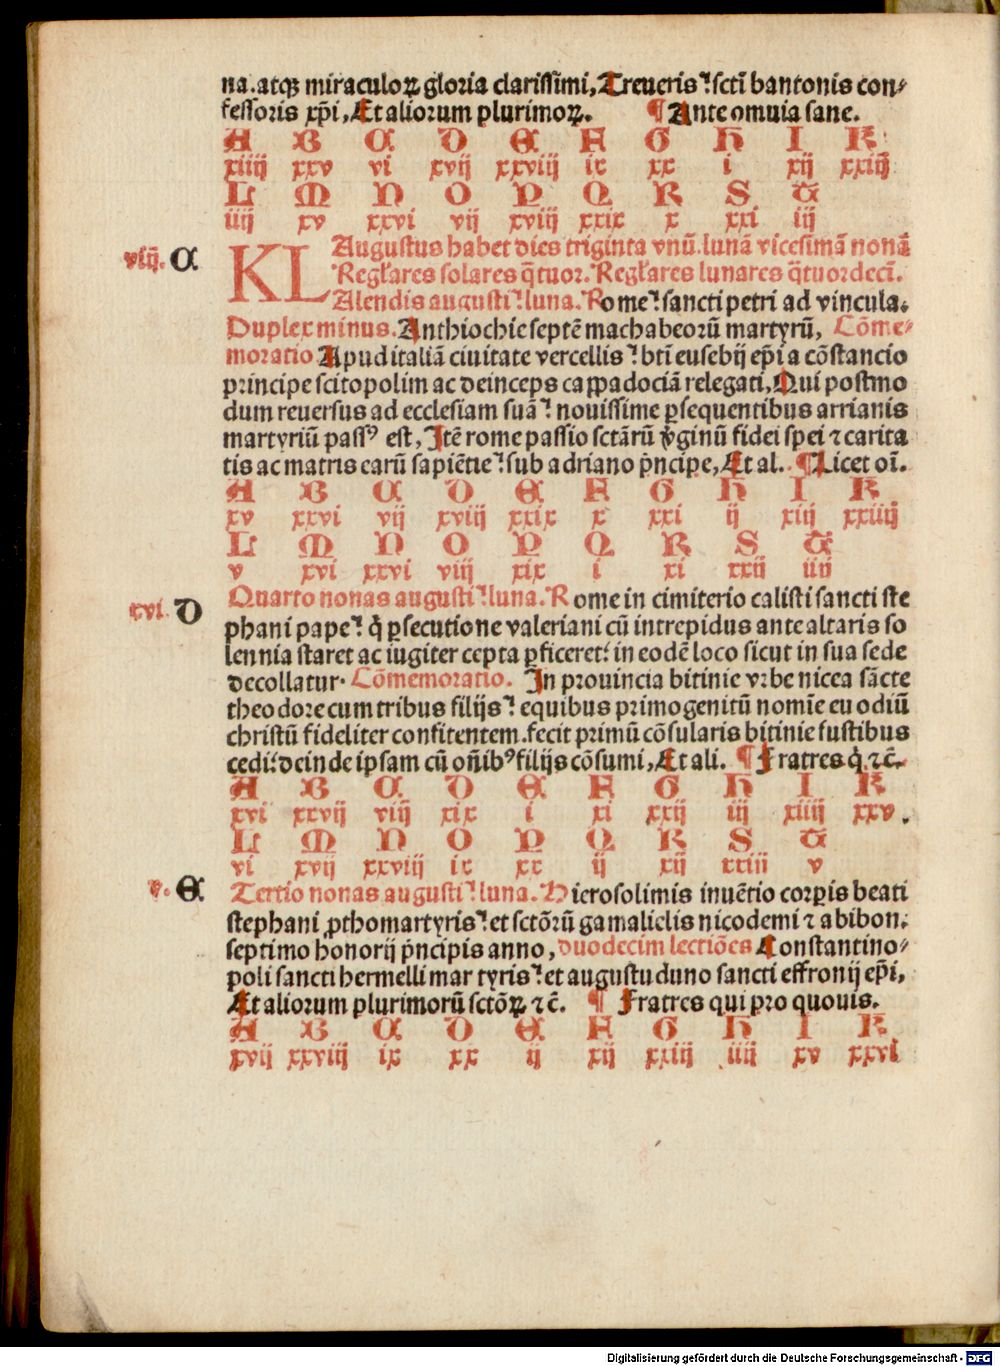 na.atqꝫ miraculoꝝ gloria clarissimi, Treueris ⸵ scti bantonis con⸗
fessoris xp̄i, Et aliorum plurimoꝝ. ¶ Ante omuia sane.
A B C D E F G H I K
xiiij xxv vi xvij xxviij ix xx i xij xxiij
L M N O P Q R S T
iiij xv xxvi vij xviij xxix x xxi iij
viij. C KL Augustus habet dies triginta vnū. lunā vicesimā nonā
Regl'ares solares q̄tuor. Regl'ares lunares q̄tuordecī.
Alendis augusti ⸵ luna. Rome ⸵ sancti petri ad vincula.
Duplex minus. Anthiochie septē machabeorū martyrū, Cōme⸗
moratio Apud italiā ciuitate vercellis ⸵ bti eusebij ep̄i a cōstancio
principe scitopolim ac deinceps cappadociā relegati, Qui postmo
dum reuersus ad ecclesiam suā ⸵ nouissime ꝑsequentibus arrianis
martyriū passꝰ est, Itē rome passio sctārū v̓ginū fidei spei ⁊ carita
tis ac matris earū sapiētie ⸵ sub adriano pⁱncipe, Et al. ¶ Licet oī.
A B C D E F G H I K
xv xxvi vij xviij xxix x xxi ij xiij xxiiij
L M N O P Q R S T
v xvi xxvi viij xix i xi xxij iiij
xvi. D Quarto nonas augusti ⸵ luna. Rome in cimiterio calisti sancti ste
phani pape ⸵ qⁱ ꝑsecutione valeriani cū intrepidus ante altaris so
lennia staret ac iugiter cepta ꝑficeret ⸵ in eodē loco sicut in sua sede
decollatur. Cōmemoratio. In prouincia bitinie vrbe nicea sācte
theodore cum tribus filijs ⸵ equibus primogenitū nomīe euodiū
christū fideliter confitentem. fecit primū cōsularis bitinie fustibus
cedi ⸵ deinde ipsam cū oñibꝰ filijs cōsumi, Et ali. ¶ Fratres qⁱ ⁊c̄.
A B C D E F G H I K
xvi xxvij viij xix i xi xxij iij xiiij xxv.
L M N O P Q R S T
vi xvij xxviij ix xx ij xij xxiii v
v. E Tertio nonas augusti ⸵ luna. Hierosolimis inuētio corꝑis beati
stephani ꝓthomartyris ⸵ et sctōrū gamalielis nicodemi ⁊ abibon.
septimo honorij pⁱncipis anno, duodecim lectiōes Constantino⸗
poli sancti hermelli martyris ⸵ et augustuduno sancti effronij ep̄i,
Et aliorum plurimorū sctōꝝ ⁊c̄. ¶ Fratres qui pro quouis.
A B C D E F G H I K
xvij xxviij ix xx ij xij xxiij iiij xv xxvi
Digitalisierung gefördert durch die Deutsche Forschungsgemeinschaft - DFG